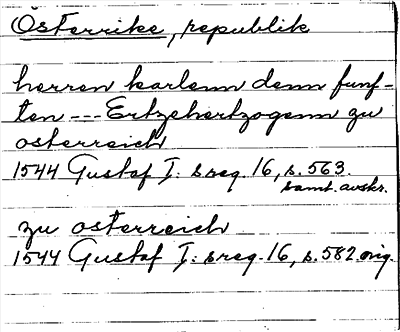 Österrike, republik
herren karlenn denn funf-
ten --- Ertzehertzogenn zu
osterreich
1544 Gustaf I: s reg. 16, s. 563.
samt. avskr.
zu osterreich
1544 Gustaf I: s reg. 16, s. 582 orig.